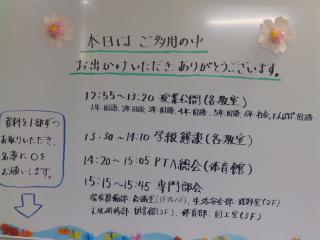 本日は ご多用の中
お出かけいただき ありがとうございます。
12:55～13:20 授業公開(各教室)
1年:国語、2年:国語、3年:国語、4年:国語、5年:国語、6年:社会、たんぽぽ:国語
13:30～14:10 学級懇談(各教室)
14:20～15:05 PTA総会(体育館)
15:15～15:45 専門部会
資料を1部ずつ
お取りいただき、
名簿に○を
お願いします。